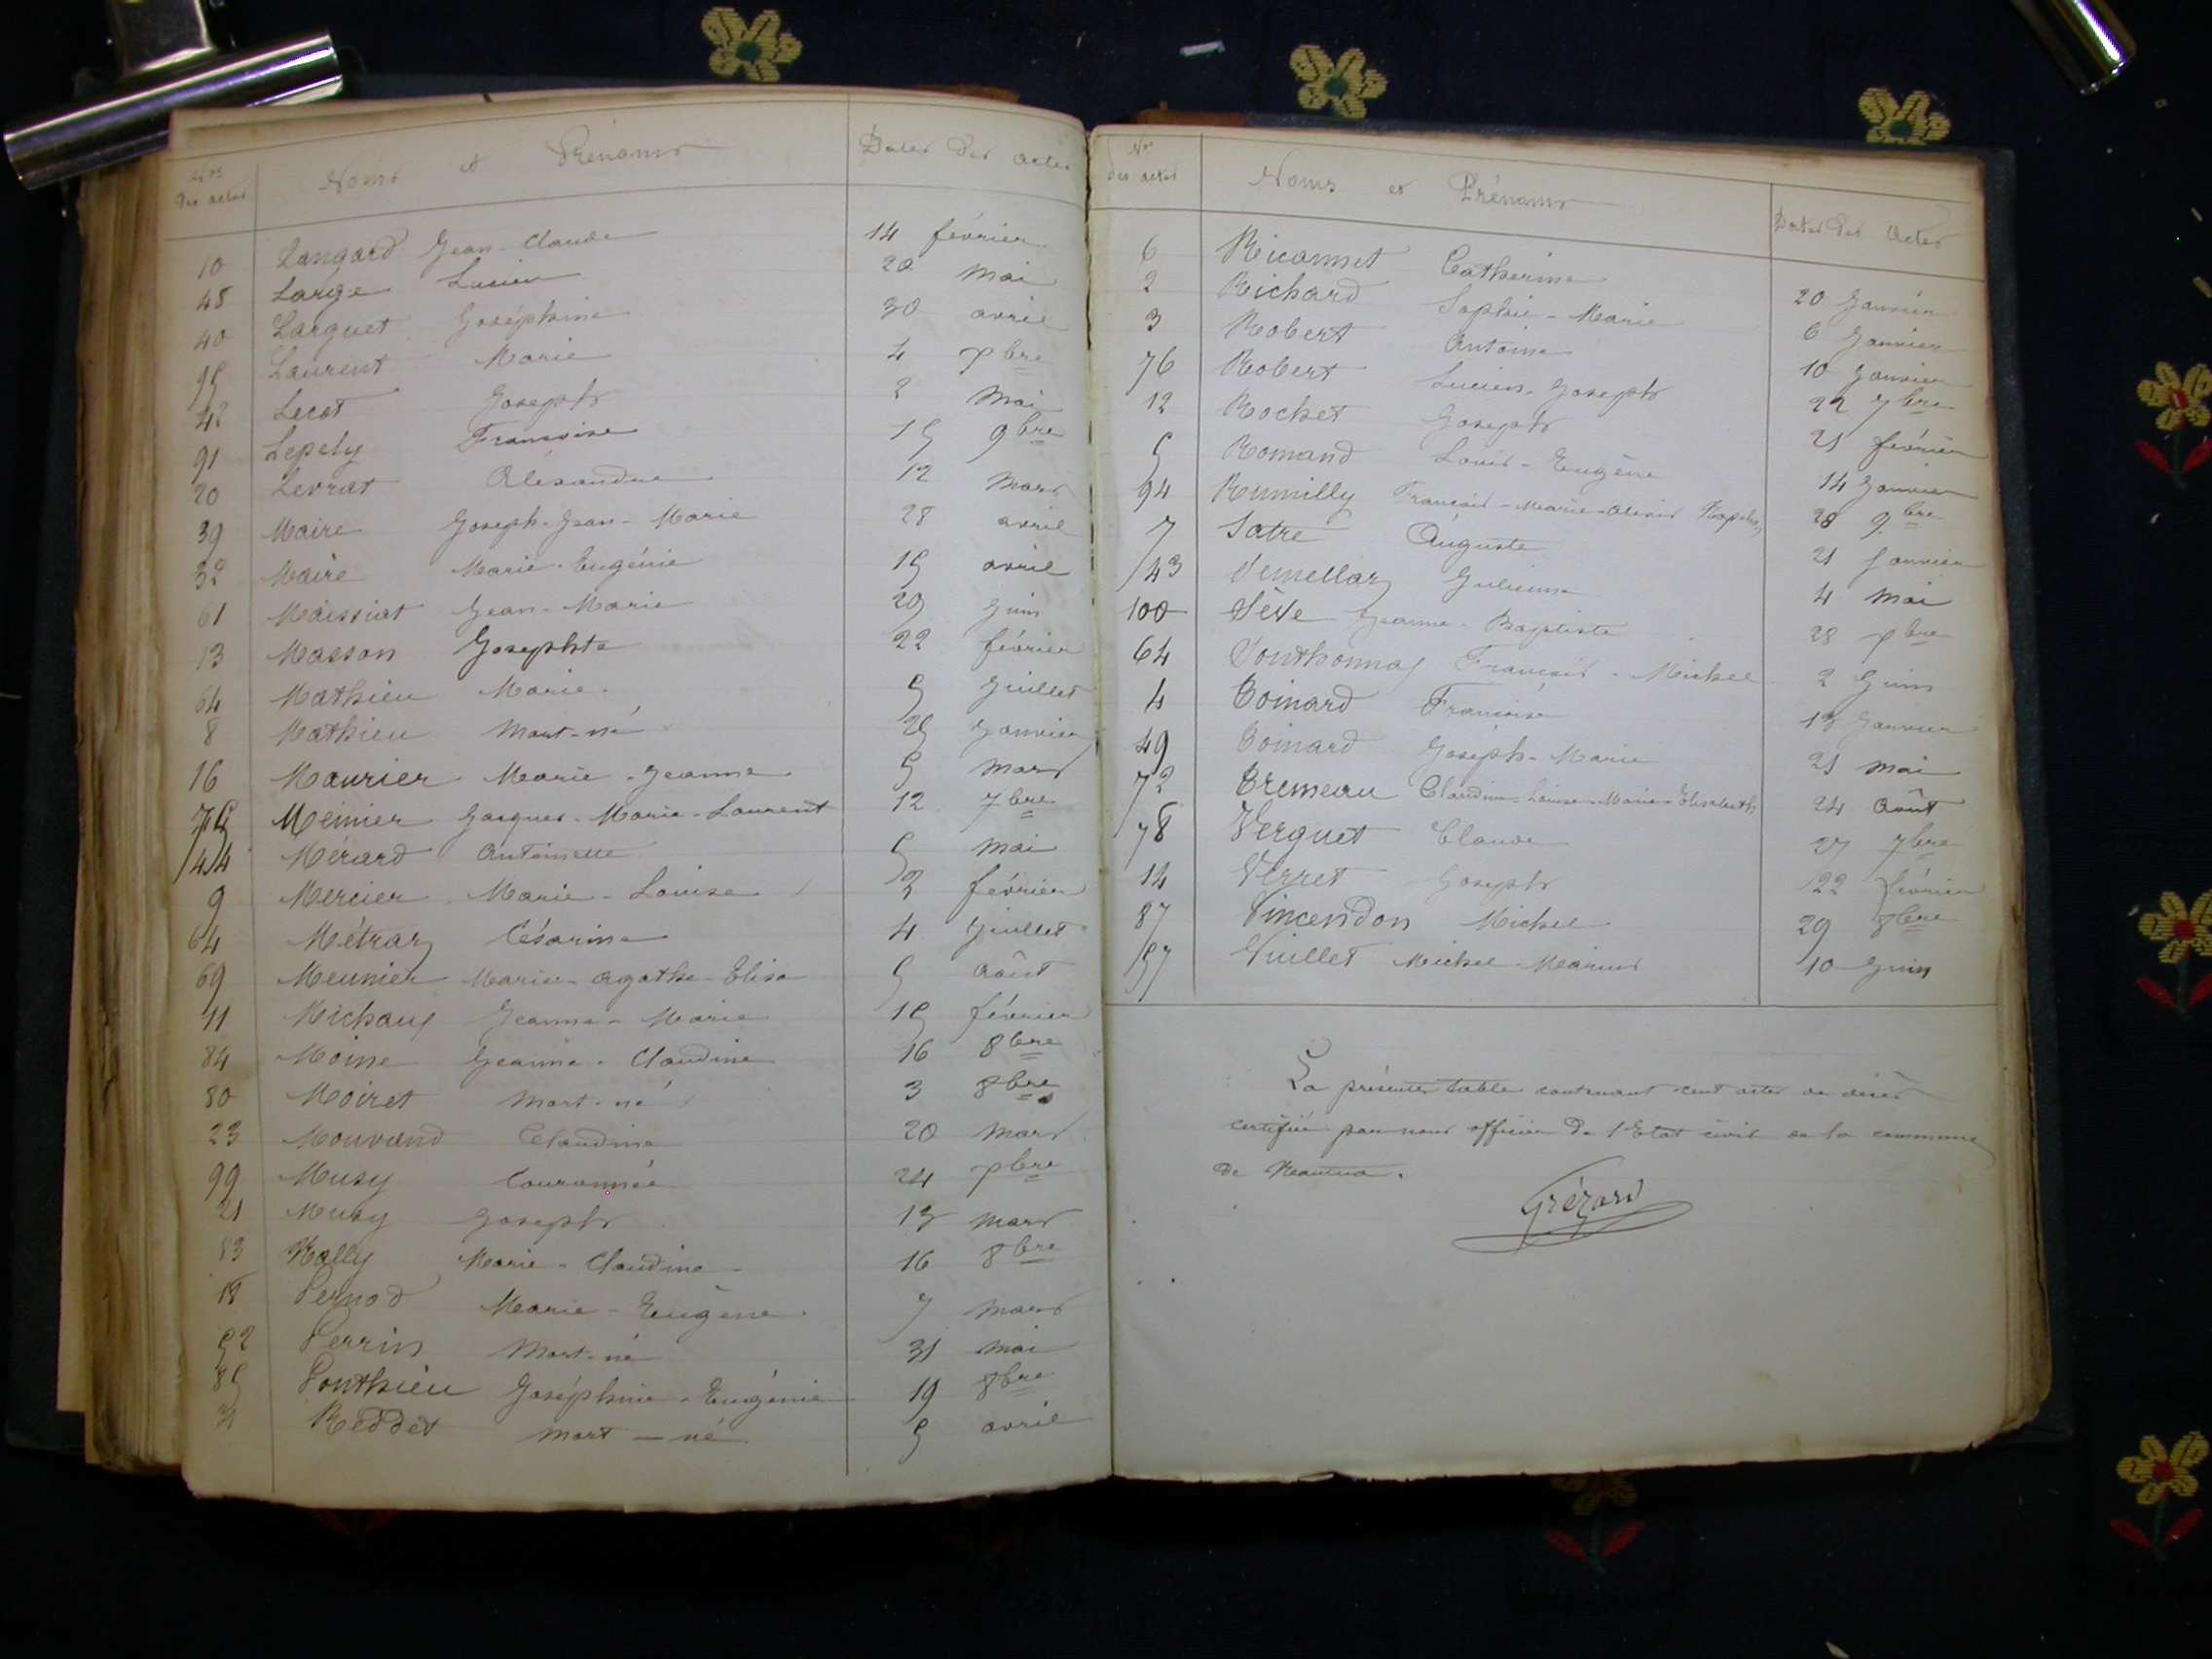 Nos des actes Noms et Prénoms Dates des actes
10 Langard Jean-Claude 14 février
45 Large Lucien 20 mai
40 Larguet Joséphine 30 avril
95 Laurent Marie 4 Xbre
42 Lecot Joseph 2 mai
91 Lepely Françoise 15 9bre
20 Levrat Alexandre 12 mars
39 Maire Joseph-Jean-Marie 28 avril
32 Maire Marie-Eugénie 15 avril
61 Maissiat Jean-Marie 29 Juin
13 Masson Josephte 22 février
64 Mathieu Marie 5 Juillet
8 Mathieu Mort-né 25 Janvier
16 Maurier Marie-Jeanne 5 mars
75 Meinier Jacques-Marie-Laurent 12 7bre
44 Mérard Antoinette 5 mai
9 Mercier Marie-Louise 2 février
64 Métraz Césarine 4 Juillet
69 Meunier Marie-Agathe-Elisa 5 Août
11 Michaux Jeanne-Marie 15 février
84 Moine Jeanne-Claudine 16 8bre
80 Moiret Mort-né 3 8bre
23 Mouvand Claudine 20 mars
99 Musy Couronnée 24 Xbre
21 Musy Joseph 13 mars
83 Nally Marie-Claudine 16 8bre
18 Pernod Marie-Eugène 7 mars
52 Perrin Mort-né 31 mai
85 Ponthieu Joséphine-Eugénie 19 8bre
31 Reddet Mort-né 5 avril
Nos des actes Noms et Prénoms Dates des Actes
6 Ricannet Catherine 20 Janvier
2 Richard Sophie-Marie 6 Janvier
3 Robert Antoine 10 Janvier
76 Robert Lucien-Joseph 22 7bre
12 Rochet Joseph 21 février
5 Romand Louis-Eugène 14 Janvier
94 Rumilly François-Marie-Alexis 28 9bre
7 Satre Auguste 21 Janvier
43 Semellaz Julienne 4 mai
100 Sève Jeanne-Baptiste 28 Xbre
54 Southonnax François-Michel 2 Juin
4 Toinard Françoise 13 Janvier
49 Toinard Joseph-Marie 21 mai
72 Tremeau Claudine-Louise-Marie-Elisabeth 24 Août
78 Verguet Claude 27 7bre
14 Verret Joseph 22 février
87 Vincendon Michel 29 8bre
57 Vuillet Michel-Marius 10 Juin
La présente table contenant cent actes de décès
certifiée par nous officier de l'Etat civil de la commune
de Nantua.
Grézard